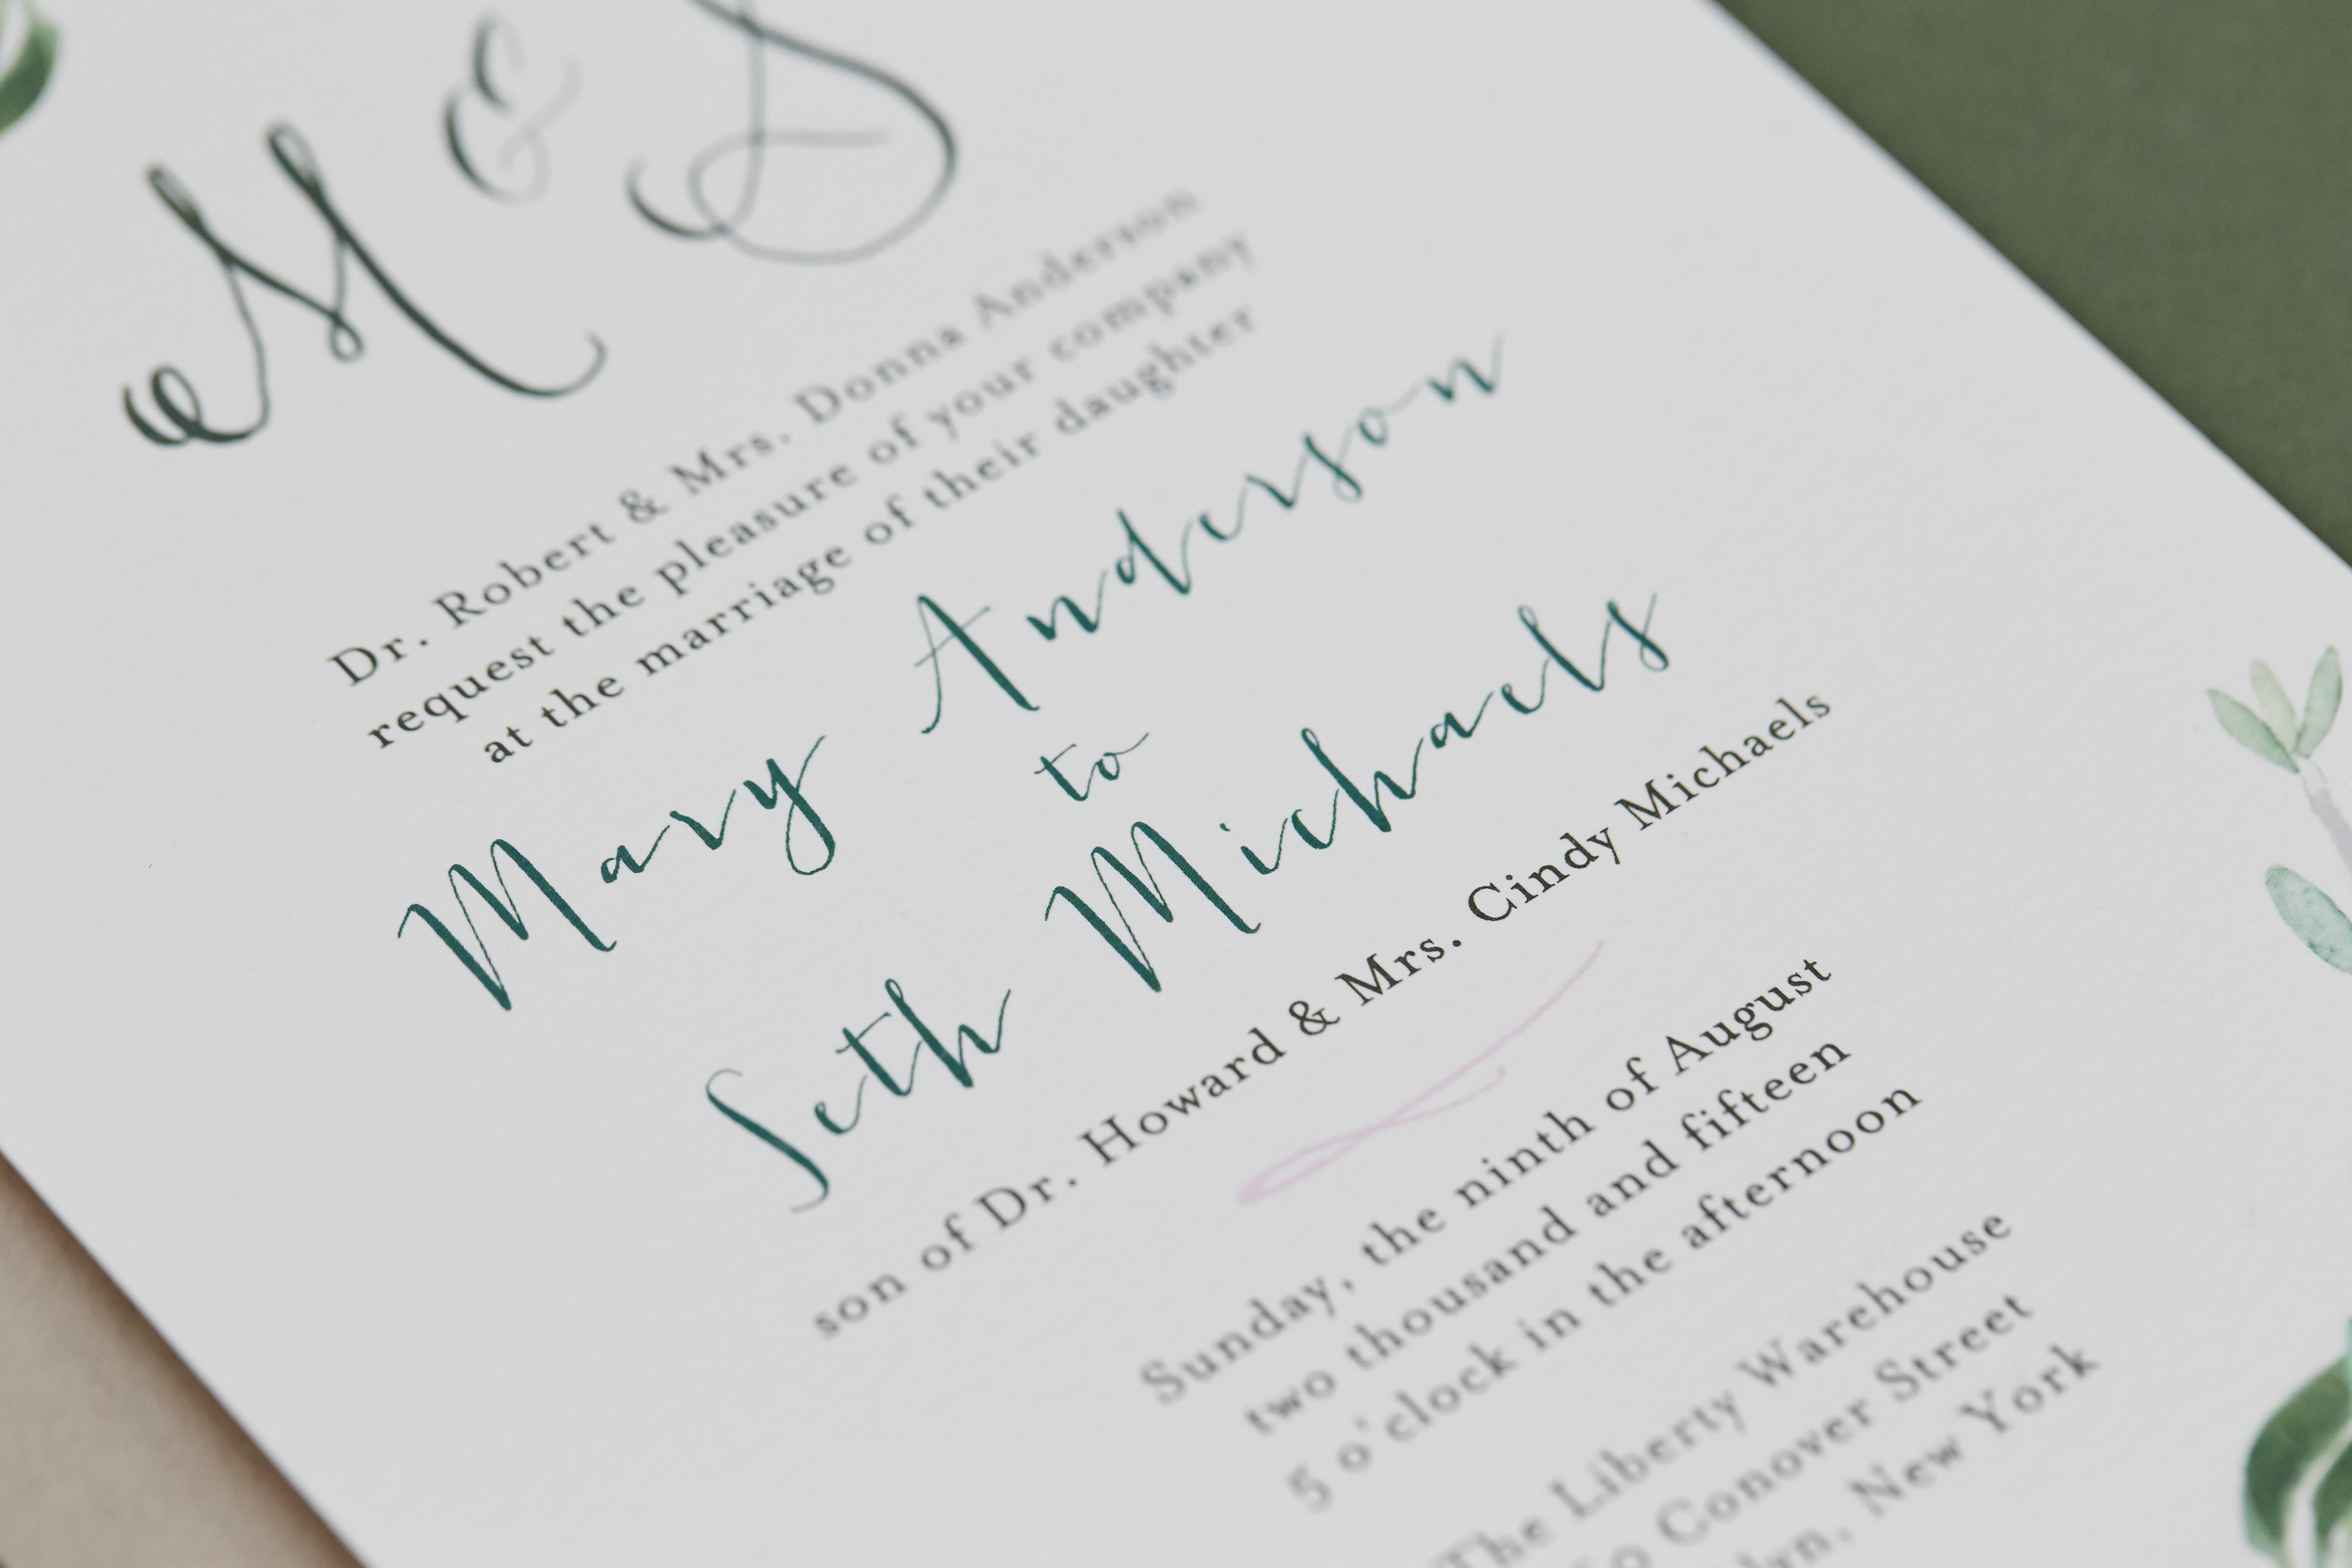 M & S
Dr. Robert & Mrs. Donna Anderson
request the pleasure of your company
at the marriage of their daughter
Mary Anderson
to
Seth Michaels
son of Dr. Howard & Mrs. Cindy Michaels
Sunday, the ninth of August
two thousand and fifteen
5 o'clock in the afternoon
The Liberty Warehouse
Conover Street
New York